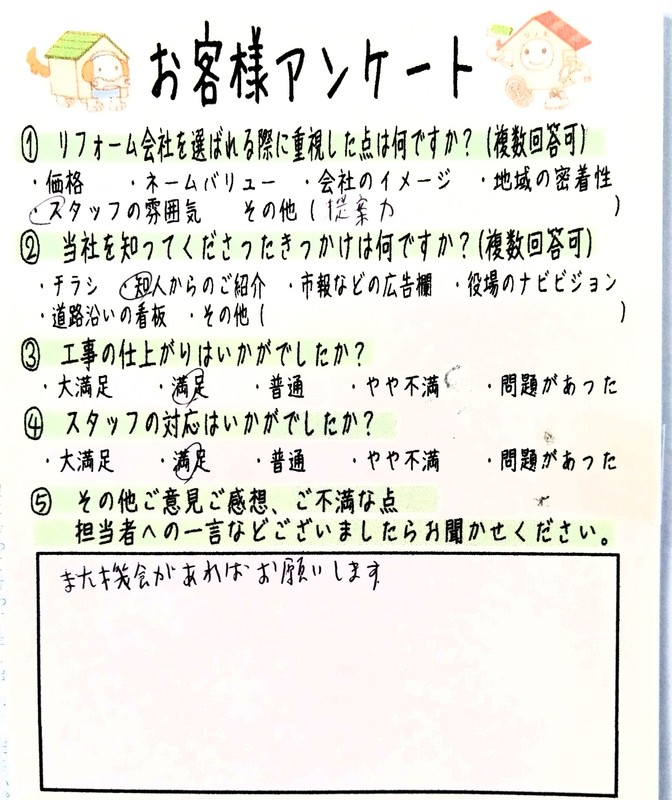 お客様アンケート
① リフォーム会社を選ばれる際に重視した点は何ですか？(複数回答可)
・価格 ・ネームバリュー ・会社のイメージ ・地域の密着性
・スタッフの雰囲気 その他(提案力)
② 当社を知ってくださったきっかけは何ですか？(複数回答可)
・チラシ ・知人からのご紹介 ・市報などの広告欄 ・役場のナビビジョン
・道路沿いの看板 ・その他( )
③ 工事の仕上がりはいかがでしたか？
・大満足 ・満足 ・普通 ・やや不満 ・問題があった
④ スタッフの対応はいかがでしたか？
・大満足 ・満足 ・普通 ・やや不満 ・問題があった
⑤ その他ご意見ご感想、ご不満な点
担当者への一言などございましたらお聞かせください。
また機会があればお願いします